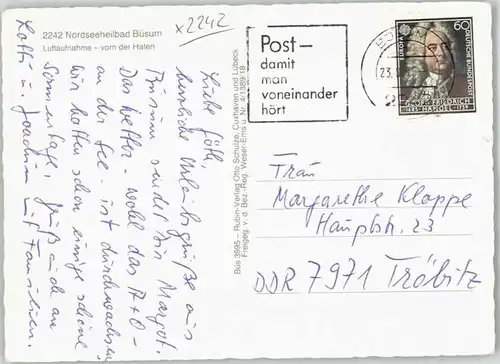 2242 Nordseeheilbad Büsum
Luftaufnahme – vorn der Hafen
x2242
Liebe Göth,
herzliche Urlaubsgrüße aus
Büsum sendet Dir Margot.
Das Wetter – wohl das A+O –
an der See – ist durchwachsen,
wir hatten schon einige schöne
Sonnentage. Grüß auch an
Lotti u. Joachim mit Familien.
Büs 3995 – Rubin-Verlag Otto Schulze, Cuxhaven und Lübeck
Freigeg. v. d. Bez.-Reg. Weser-Ems u. Nr. 4/1389/18
Post–
damit
man
voneinander
hört
23.
60
EUROPA
DEUTSCHE BUNDESPOST
GEORG FRIEDRICH
1685 HÄNDEL 1759
Frau
Margarethe Kloppe
Hauptstr. 23
DDR 7971 Tröbitz